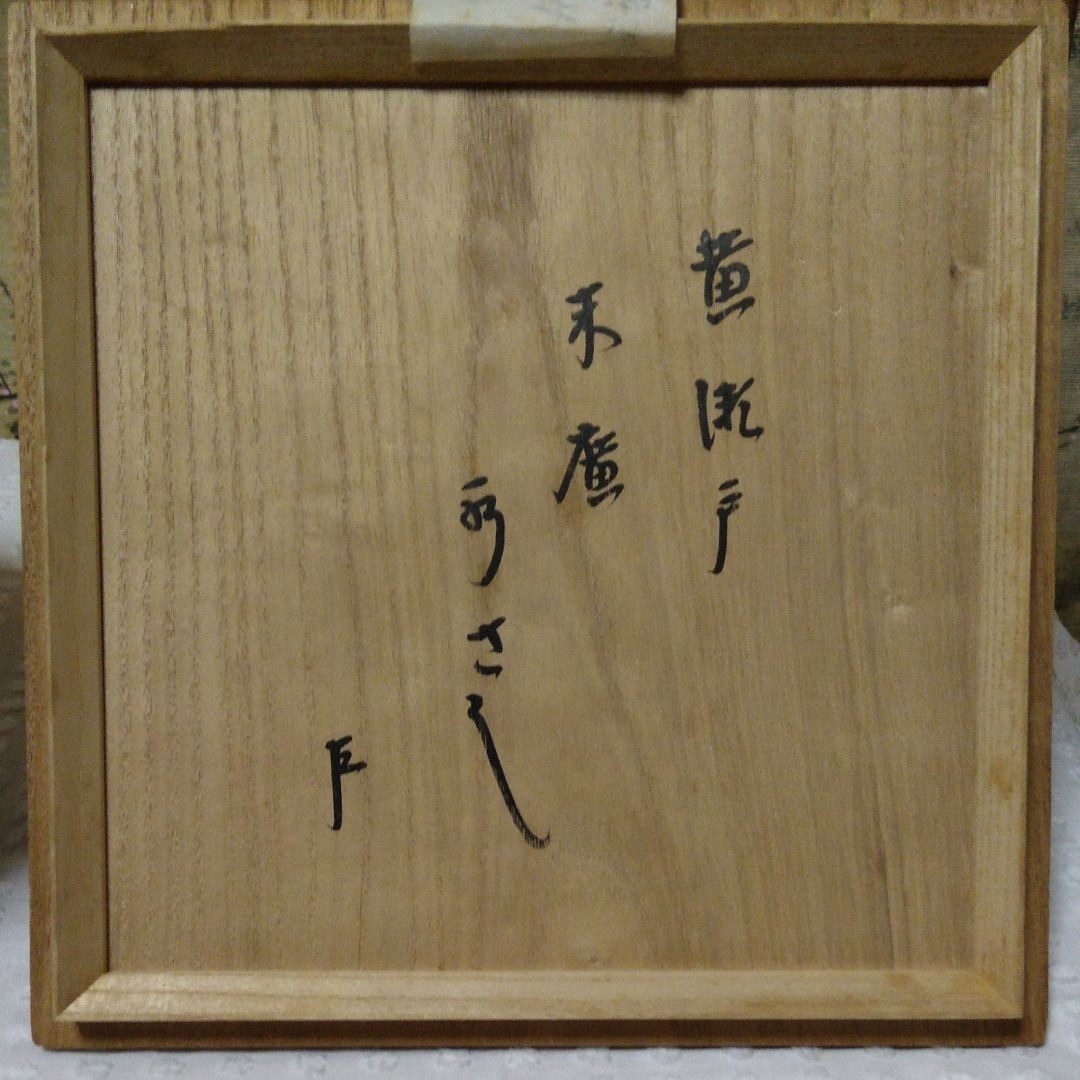 黄瀬戸
末廣
水さし